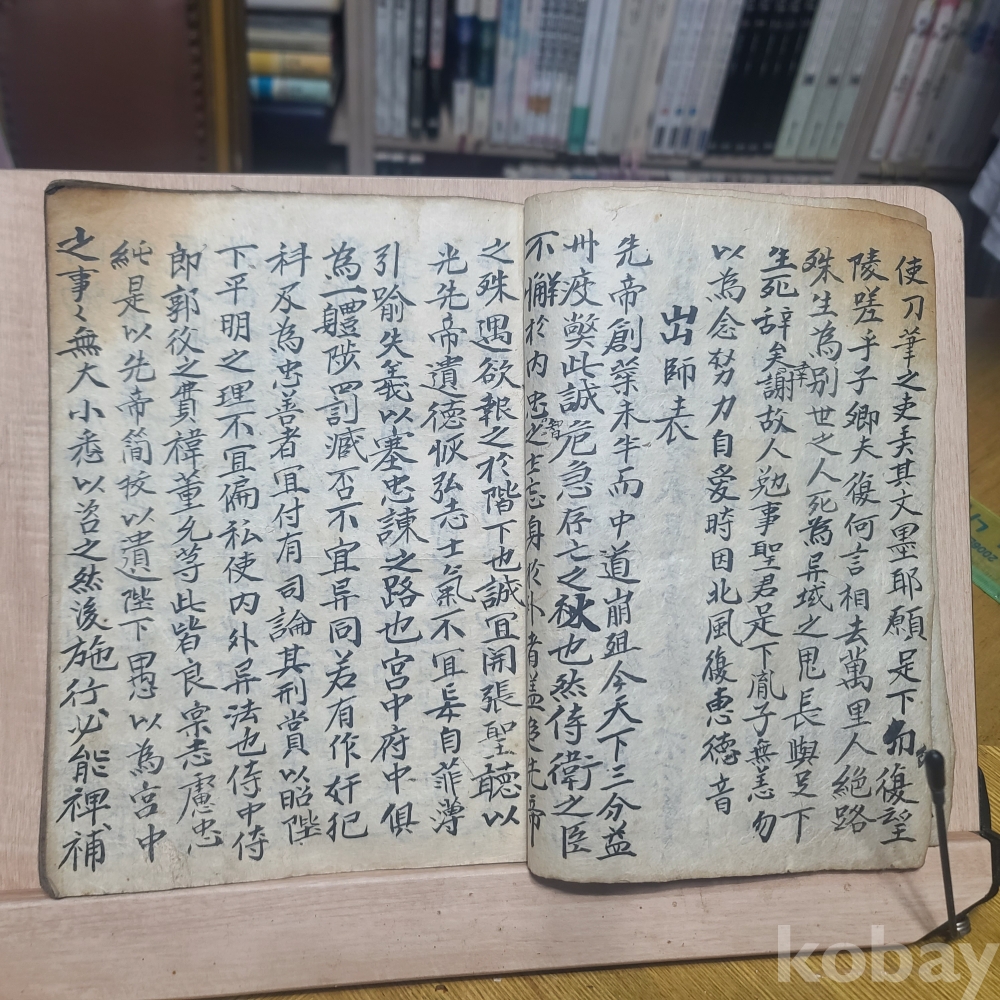 使刀筆之吏弄其文墨耶願足下勿復望
陵嗟乎子卿夫復何言相去萬里人絶路
殊生為別世之人死為异域之鬼長與足下
生死辞矣幸謝故人勉事聖君足下胤子無恙勿
以為念努力自爱時因北風復恵德音
出師表
先帝創業未半而中道崩殂今天下三分益
州疲獘此誠危急存亡之秋也然侍衛之臣
不懈於内忠志之士忘身於外者盖追先帝
之殊遇欲報之於陛下也誠宜開張聖聽以
光先帝遺德恢弘志士之氣不宜妄自菲薄
引喻失義以塞忠諫之路也宮中府中俱
為一軆陟罰臧否不宜异同若有作奸犯
科及為忠善者宜付有司論其刑賞以昭陛
下平明之理不宜偏私使内外异法也侍中侍
郎郭攸之費褘董允等此皆良宲志慮忠
純是以先帝简拔以遺陛下愚以為宮中
之事〻無大小悉以咨之然後施行必能裨補
kobay